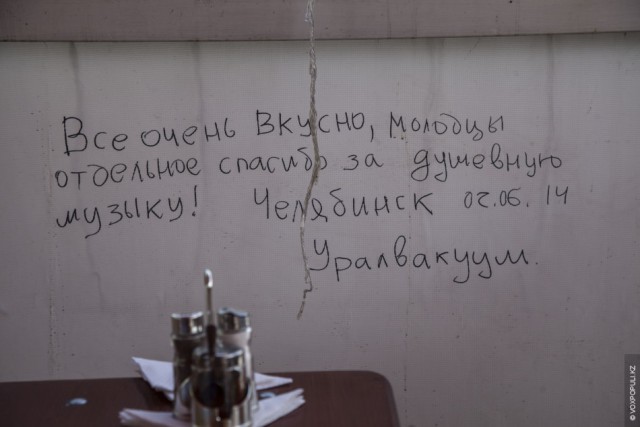 Все очень вкусно, молодцы
отдельное спасибо за душевную
музыку! Челябинск 02.06.14
Уралвакуум.
© VOXPOPULI.KZ